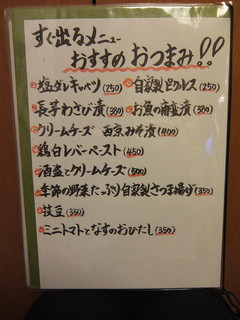 すぐ出るメニュー
おすすめ おつまみ!!
塩ダレキャベツ(250) 自家製ピクルス(250)
長芋わさび漬(380) お魚の南蛮漬(380)
クリームチーズ 西京みそ漬(400)
鶏白レバーペースト(450)
酒盗とクリームチーズ(500)
季節の野菜たっぷり自家製さつま揚げ(350)
枝豆(350)
ミニトマトとなすのおひたし(350)